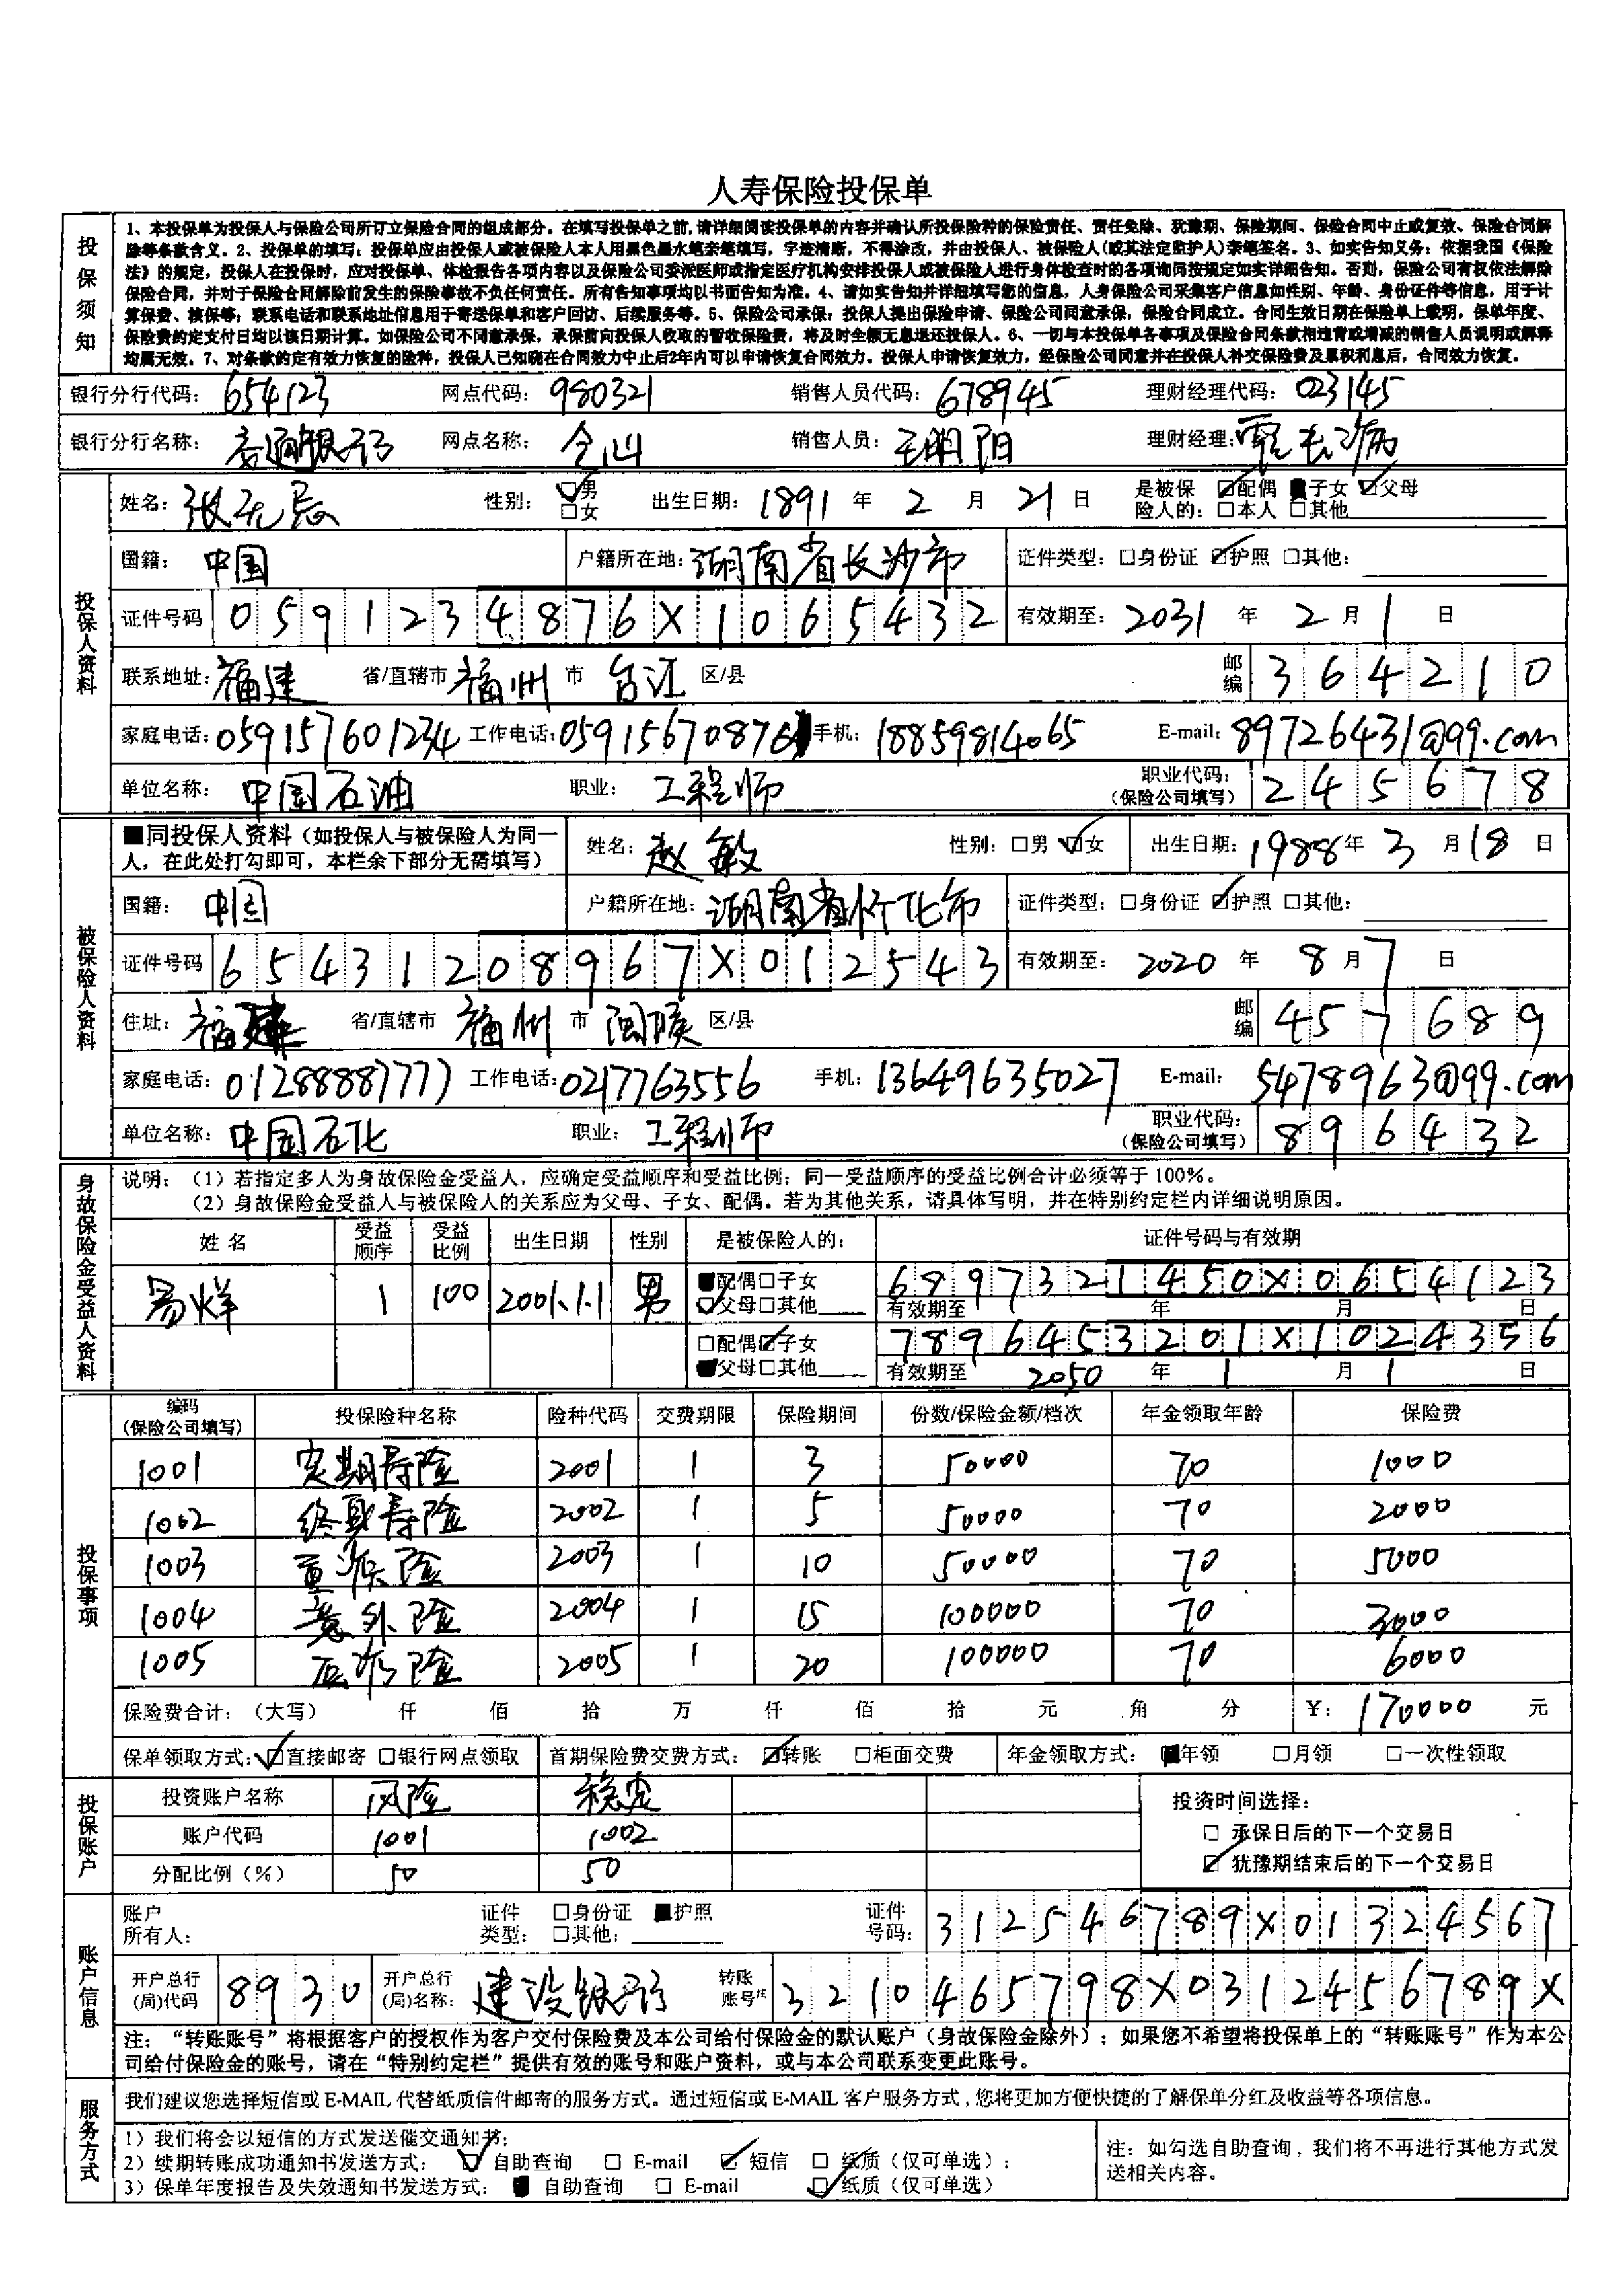 人寿保险投保单
投保须知
1、本投保单为投保人与保险公司所订立保险合同的组成部分。在填写投保单之前,请详细阅读投保单的内容并确认所投保险种的保险责任、责任免除、犹豫期、保险期间、保险合同中止或复效、保险合同解
除等条款含义。2、投保单的填写：投保单应由投保人或被保险人本人用黑色墨水笔亲笔填写，字迹清晰，不得涂改，并由投保人、被保险人(或其法定监护人)亲笔签名。3、如实告知义务：依据我国《保险
法》的规定，投保人在投保时，应对投保单、体检报告各项内容以及保险公司委派医师或指定医疗机构安排投保人或被保险人进行身体检查时的各项询问按规定如实详细告知。否则，保险公司有权依法解除
保险合同，并对于保险合同解除前发生的保险事故不负任何责任。所有告知事项均以书面告知为准。4、请如实告知并详细填写您的信息，人身保险公司采集客户信息如性别、年龄、身份证件等信息，用于计
算保费、核保等；联系电话和联系地址信息用于寄送保单和客户回访、后续服务等。5、保险公司承保：投保人提出保险申请、保险公司同意承保，保险合同成立。合同生效日期在保险单上载明，保单年度、
保险费约定支付日均以该日期计算。如保险公司不同意承保，承保前向投保人收取的暂收保险费，将及时全额无息退还投保人。6、一切与本投保单各事项及保险合同条款相违背或增减的销售人员说明或解释
均属无效。7、对条款约定有效力恢复的险种，投保人已知晓在合同效力中止后2年内可以申请恢复合同效力。投保人申请恢复效力，经保险公司同意并在投保人补交保险费及累积利息后，合同效力恢复。
银行分行代码：654123 网点代码：980321 销售人员代码：678945 理财经理代码：023145
银行分行名称：交通银行 网点名称：仓山 销售人员：王朝阳 理财经理：霍去病
投保人资料
姓名：张无忌 性别：□男 □女 出生日期：1891 年 2 月 21 日 是被保险人的：□配偶 ■子女 □父母 □本人 □其他
国籍：中国 户籍所在地：湖南省长沙市 证件类型：□身份证 □护照 □其他：
证件号码 0591234876X1065432 有效期至：2031 年 2 月 1 日
联系地址：福建 省/直辖市 福州 市 台江 区/县 邮编 364210
家庭电话：059157601234 工作电话：05915670876 手机：18859814065 E-mail：89726431@99.com
单位名称：中国石油 职业：工程师 职业代码：（保险公司填写） 245678
被保险人资料
■同投保人资料（如投保人与被保险人为同一人，在此处打勾即可，本栏余下部分无需填写） 姓名：赵敏 性别：□男 □女 出生日期：1988 年 3 月 18 日
国籍：中国 户籍所在地：湖南省怀化市 证件类型：□身份证 □护照 □其他：
证件号码 65431208967X012543 有效期至：2020 年 8 月 7 日
住址：福建 省/直辖市 福州 市 闽侯 区/县 邮编 457689
家庭电话：0128888777 工作电话：0217763556 手机：13649635027 E-mail：5478963@99.com
单位名称：中国石化 职业：工程师 职业代码：（保险公司填写） 896432
身故保险金受益人资料
说明：（1）若指定多人为身故保险金受益人，应确定受益顺序和受益比例；同一受益顺序的受益比例合计必须等于 100%。
（2）身故保险金受益人与被保险人的关系应为父母、子女、配偶。若为其他关系，请具体写明，并在特别约定栏内详细说明原因。
姓 名 受益顺序 受益比例 出生日期 性别 是被保险人的： 证件号码与有效期
易烊 1 100 2001.1.1 男 ■配偶□子女 □父母□其他 6897321450X0654123
有效期至 年 月 日
□配偶□子女 ■父母□其他 7896453201X1024356
有效期至 2050 年 1 月 1 日
投保事项
编码（保险公司填写） 投保险种名称 险种代码 交费期限 保险期间 份数/保险金额/档次 年金领取年龄 保险费
1001 定期寿险 2001 1 3 50000 70 1000
1002 终身寿险 2002 1 5 50000 70 2000
1003 重疾险 2003 1 10 50000 70 5000
1004 意外险 2004 1 15 100000 70 3000
1005 医疗险 2005 1 20 100000 70 6000
保险费合计：（大写） 仟 佰 拾 万 仟 佰 拾 元 角 分 ¥：170000 元
保单领取方式：□直接邮寄 □银行网点领取 首期保险费交费方式：□转账 □柜面交费 年金领取方式：■年领 □月领 □一次性领取
投保账户
投资账户名称 风险 稳定 投资时间选择：
账户代码 1001 1002 □ 承保日后的下一个交易日
分配比例（%） 50 50 □ 犹豫期结束后的下一个交易日
账户信息
账户所有人： 证件类型：□身份证 ■护照 □其他： 证件号码：312546789X01324567
开户总行(局)代码 8930 开户总行(局)名称：建设银行 转账账号注 3210465798X0312456789X
注：“转账账号”将根据客户的授权作为客户交付保险费及本公司给付保险金的默认账户（身故保险金除外）；如果您不希望将投保单上的“转账账号”作为本公
司给付保险金的账号，请在“特别约定栏”提供有效的账号和账户资料，或与本公司联系变更此账号。
服务方式
我们建议您选择短信或 E-MAIL 代替纸质信件邮寄的服务方式。通过短信或 E-MAIL 客户服务方式，您将更加方便快捷的了解保单分红及收益等各项信息。
1）我们将会以短信的方式发送催交通知书；
2）续期转账成功通知书发送方式：□ 自助查询 □ E-mail □ 短信 □ 纸质（仅可单选）；
3）保单年度报告及失效通知书发送方式：■ 自助查询 □ E-mail □ 纸质（仅可单选）
注：如勾选自助查询，我们将不再进行其他方式发
送相关内容。